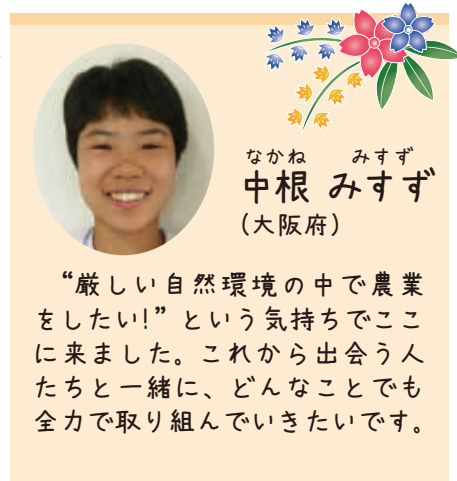 なかね　みすず
中根 みすず
(大阪府)
“厳しい自然環境の中で農業
をしたい!”という気持ちでここ
に来ました。これから出会う人
たちと一緒に、どんなことでも
全力で取り組んでいきたいです。